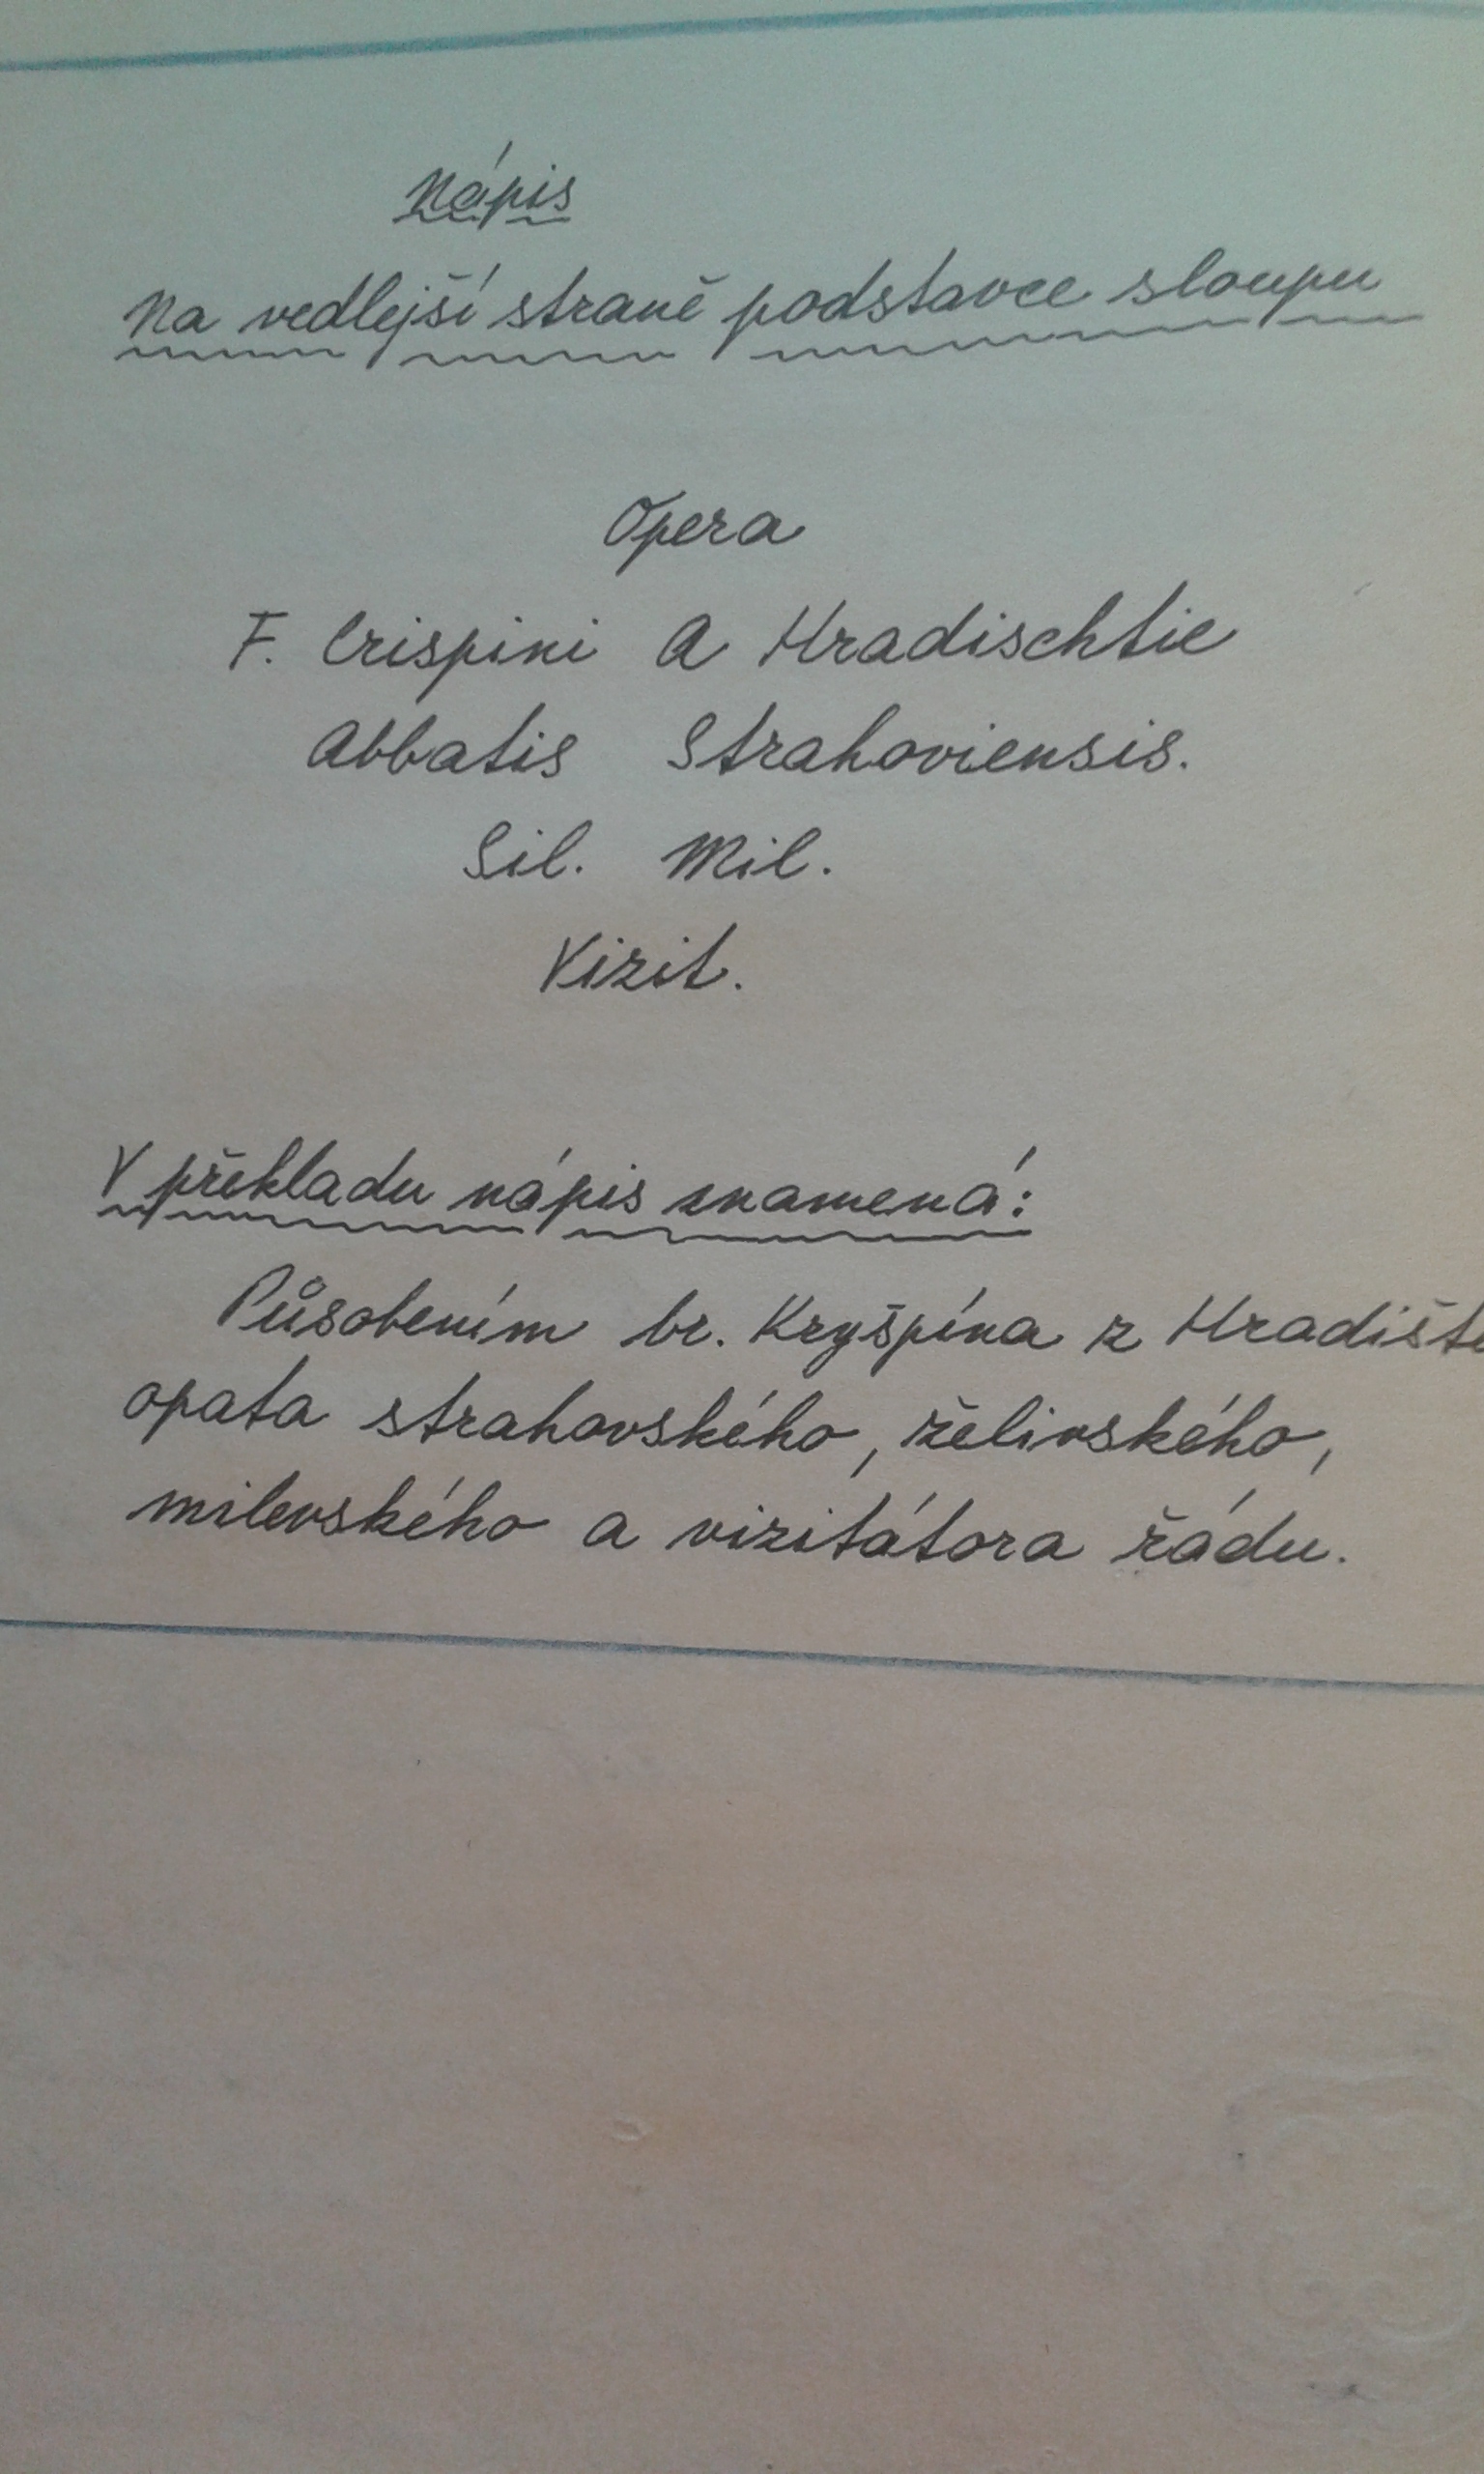 Nápis
Na vedlejší straně podstavce sloupu
Opera
F. Crispini A Hradischtie
Abbatis Strahoviensis.
Sil. Mil.
Vizit.
V překladu nápis znamená:
Působením br. Kryšpína z Hradiště
opata strahovského, želivského,
milevského a vizitátora řádu.